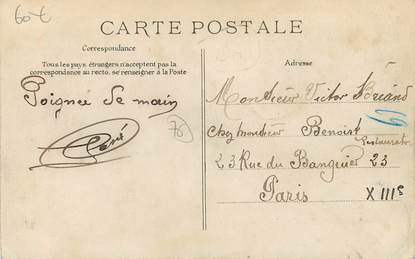 60€
CARTE POSTALE
Correspondance
Tous les pays étrangers n'acceptent pas la
correspondance au recto. se renseigner à la Poste
Poignée de main
75
Adresse
Monsieur Victor Briand
Chez Monsieur Benoist
Restaurateur
23 Rue du Banquier 23
Paris XIIIe